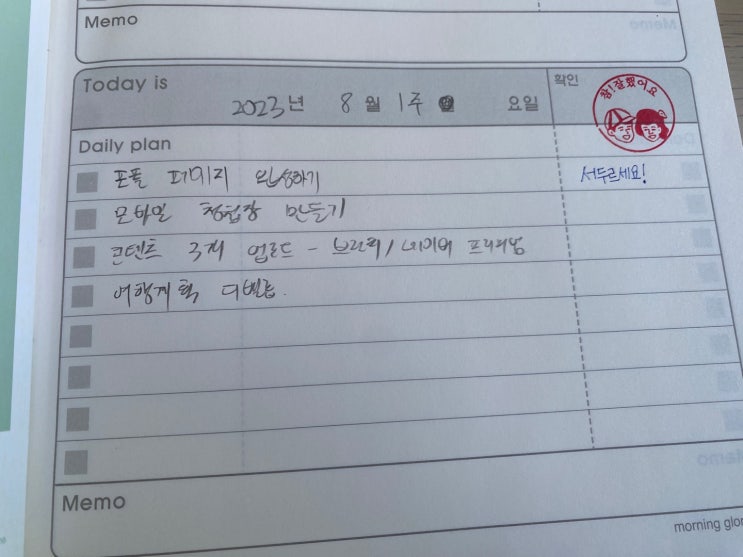 Memo
Today is
2023년 8월 1주 요일
확인
참!잘했어요
Daily plan
포폴 페이지 완성하기
서두르세요!
모바일 청첩장 만들기
콘텐츠 3개 업로드 - 브런치/네이버 프리미엄
여행계획 디벨롭.
Memo
morning glor